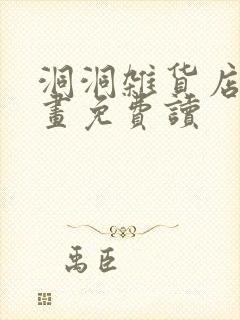 洞洞雜貨店
畫免費讀
禹臣